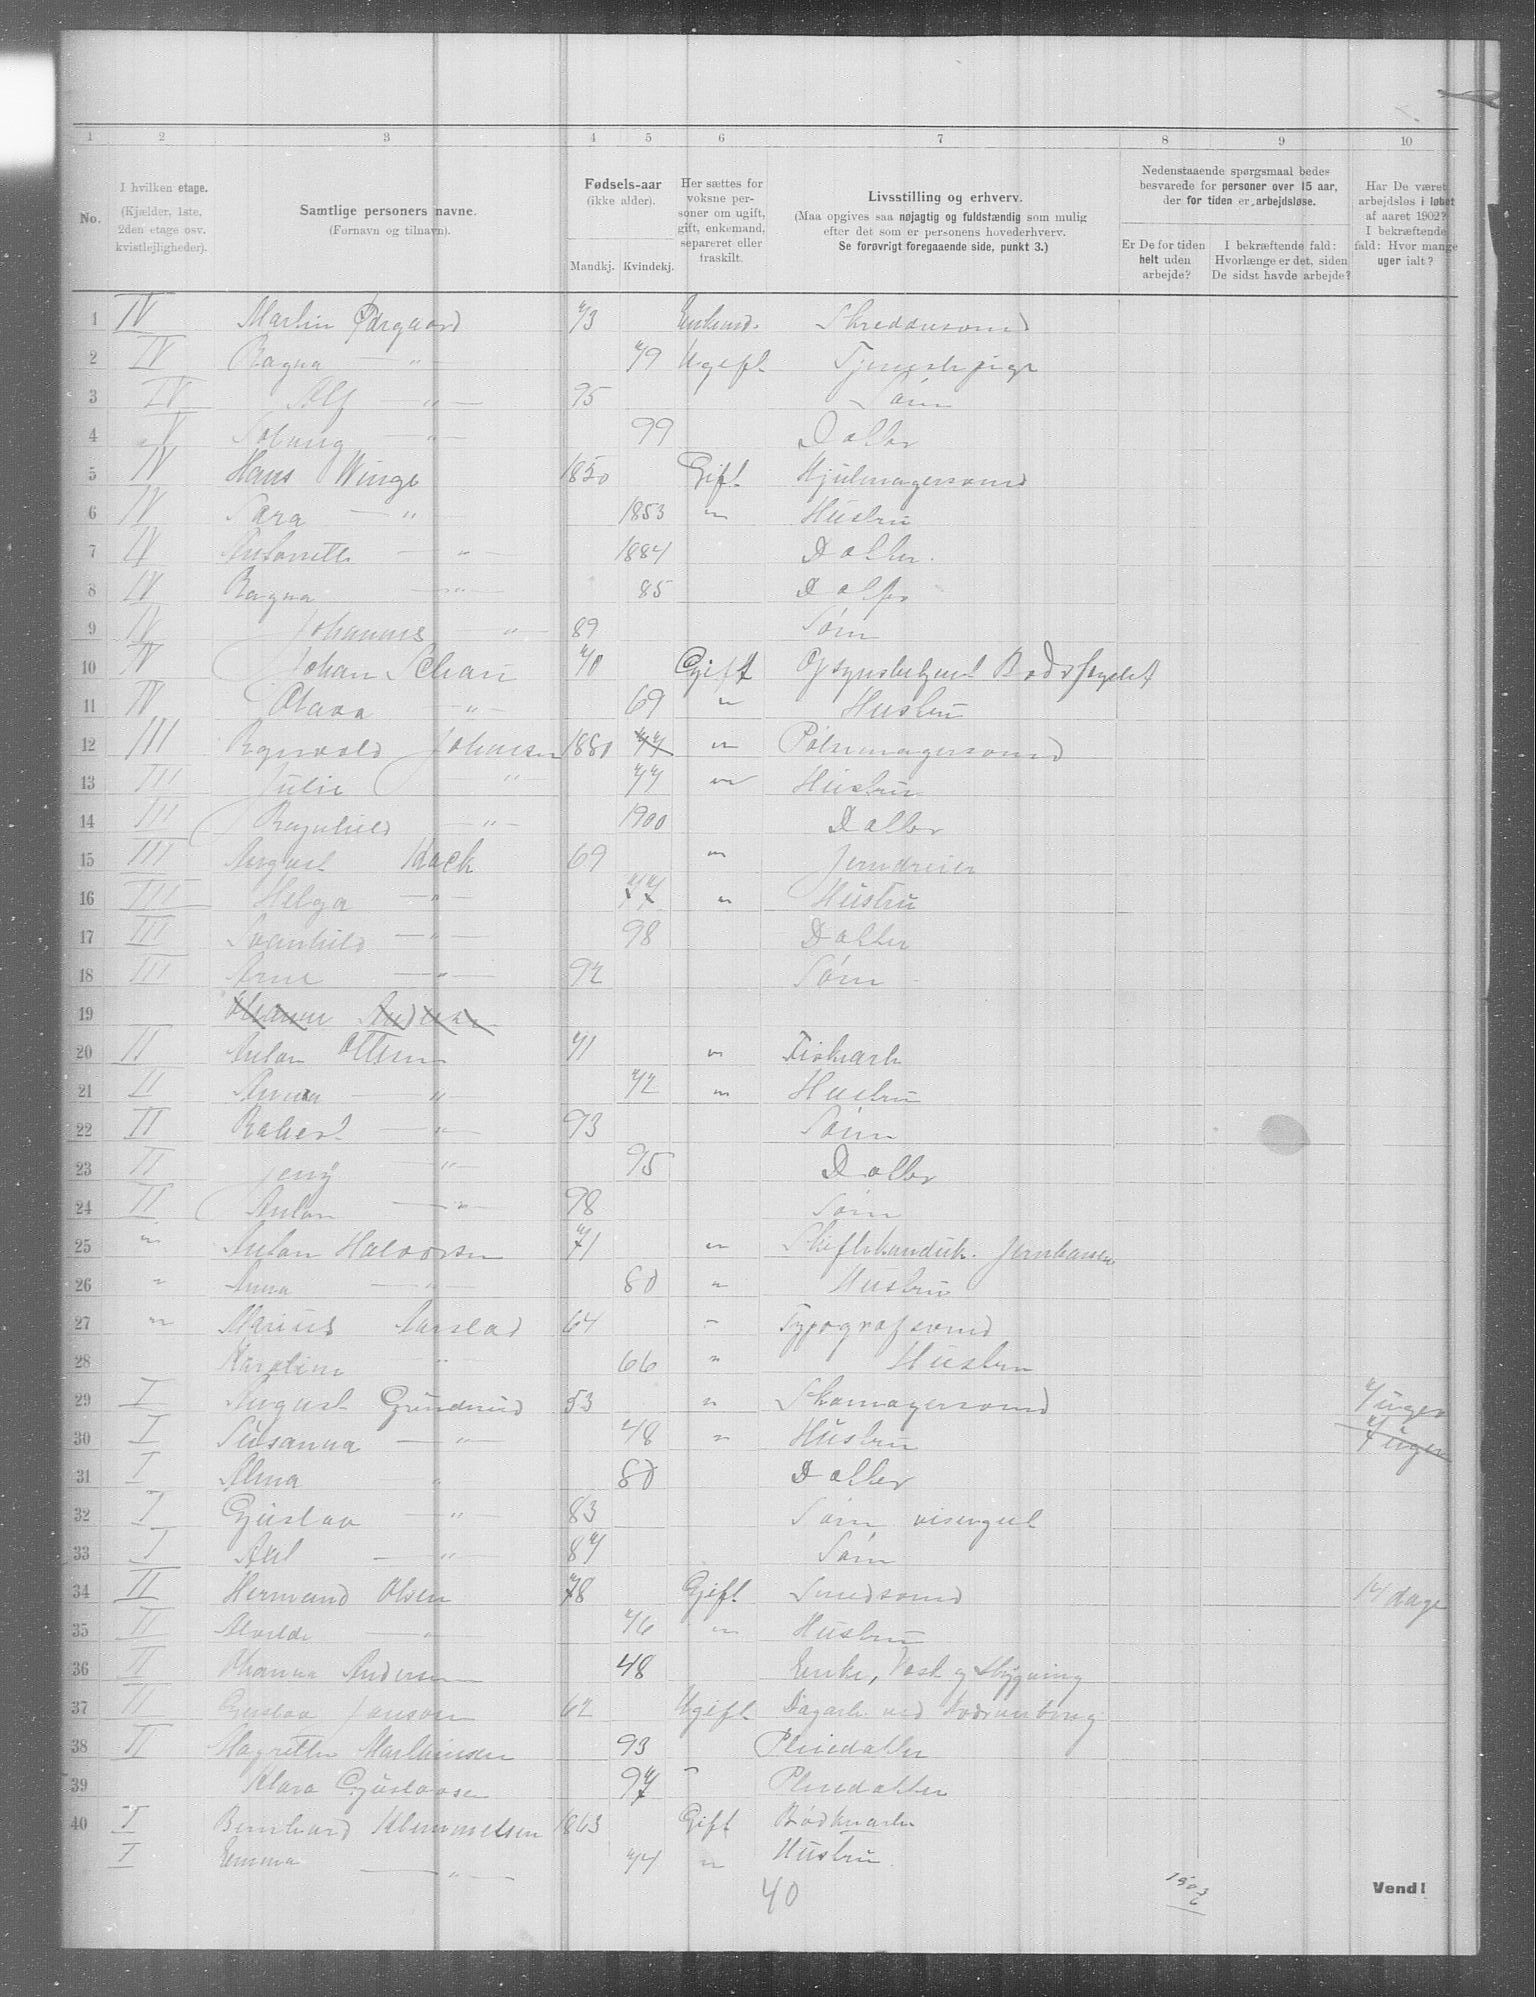 1 2 3 4 5 6 7 8 9 10
No.
I hvilken etage.
(Kjælder, 1ste,
2den etage osv.
kvistlejligheder).
Samtlige personers navne.
(Fornavn og tilnavn).
Fødsels-aar
(ikke alder).
Mandkj. Kvindekj.
Her sættes for
voksne per-
soner om ugift,
gift, enkemand,
separeret eller
fraskilt.
Livsstilling og erhverv.
(Maa opgives saa nøjagtig og fuldstændig som mulig
efter det som er personens hovederhverv.
Se forøvrigt foregaaende side, punkt 3.)
Nedenstaaende spørgsmaal bedes
besvarede for personer over 15 aar,
der for tiden er arbejdsløse.
Er De for tiden
helt uden
arbejde?
I bekræftende fald:
Hvorlænge er det, siden
De sidst havde arbejde?
Har De været
arbejdsløs i løbet
af aaret 1902?
I bekræftende
fald: Hvor mange
uger ialt?
1 IV Martin Ørgaard 73 Enkemd. Skreddersvend
2 IV Ragna — " — 79 Ugift Tjenestepige
3 IV Alf — " — 95 Søn
4 IV Solveig — " — 99 Datter
5 IV Hans Winge 1850 Gift Hjulmagersvend
6 IV Sara — " — 1853 " Hustru
7 IV Antonette — " — 1884 Datter
8 IV Ragna — " — 85 Datter
9 IV Johannes — " — 89 Søn
10 IV Johan 70 Gift Opsynsbetjent Bodsfengslet
11 IV Olava — " — 69 " Hustru
12 III Rgnvald Johnsen 1880 77 " Pølsemagersvend
13 III Julie — " — 77 " Hustru
14 III Ragnhild — " — 1900 Datter
15 III August 69 " Jerndreier
16 III Helga — " — 77 " Hustru
17 III Svanhild — " — 98 Datter
18 III Arne — " — 92 Søn
19
20 II Anton Ottesen 71 " Fiskearb
21 II Anna — " — 72 " Hustru
22 II Robert — " — 93 Søn
23 II Jeny — " — 95 Datter
24 II Anton — " — 98 Søn
25 " Anton Halvorsen 71 " Skiftekonduk. Jernbanen
26 " Anna — " — 80 " Hustru
27 " Marius Aarstad 64 " Typografsvend
28 Karoline " 66 " Hustru
29 I August Grundrud 53 " Skomagersvend 7 uger
30 I Susanna — " — 48 " Hustru 7 uger
31 I Alma " 80 Datter
32 I Gustav — " — 83 Søn visergut
33 I Axel — " — 87 Søn
34 II Hermand Olsen 78 Gift Smedsvend 14 dage
35 II Alvilde — " — 76 " Hustru
36 II Andersen 48 Enke, Vask og Strygning
37 II Gustav Jansen 62 Ugift Dagarb. ved
38 II Magrethe Marthinsen 93 Pleiedatter
39 Klara Gustavsen 97 " Pleiedatter
40 I Bernhard Klemmetsen 1863 Gift Bødkerarb
I Emma — " — 74 " Hustru
40
Vend!